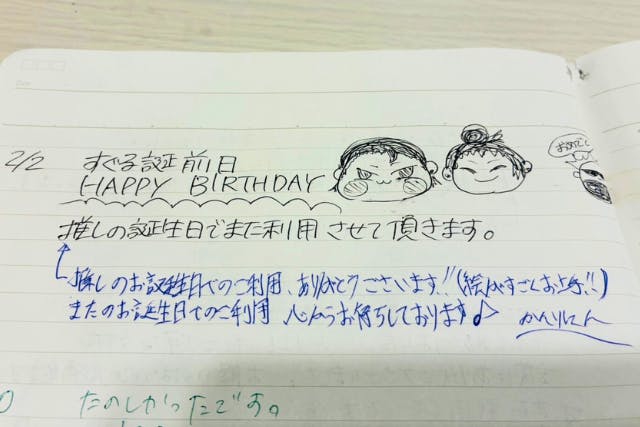 2/2 すぐる誕前日
HAPPY BIRTHDAY
おめでとう
推しの誕生日でまた利用させて頂きます。
推しのお誕生日でのご利用、ありがとうございます!!(絵がすごくお上手!!)
またのお誕生日でのご利用 心からお待ちしております♪ かんりにん
たのしかったです。